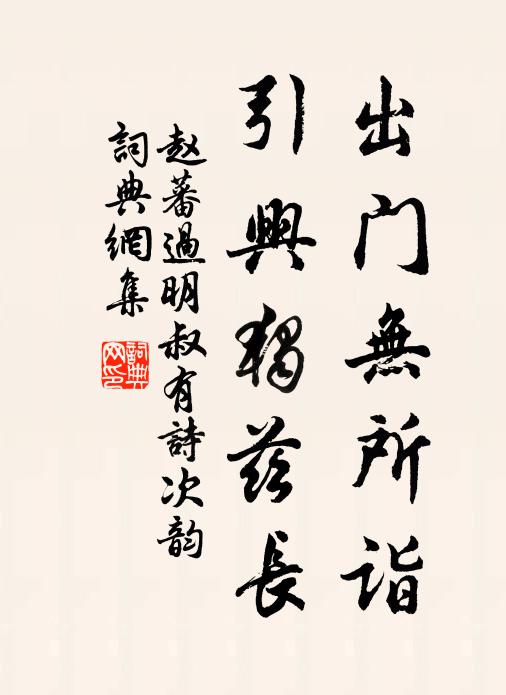 出門無所詣
引興獨茲長
赵蕃過明叔有詩次韵
詞典網集
詞典網印